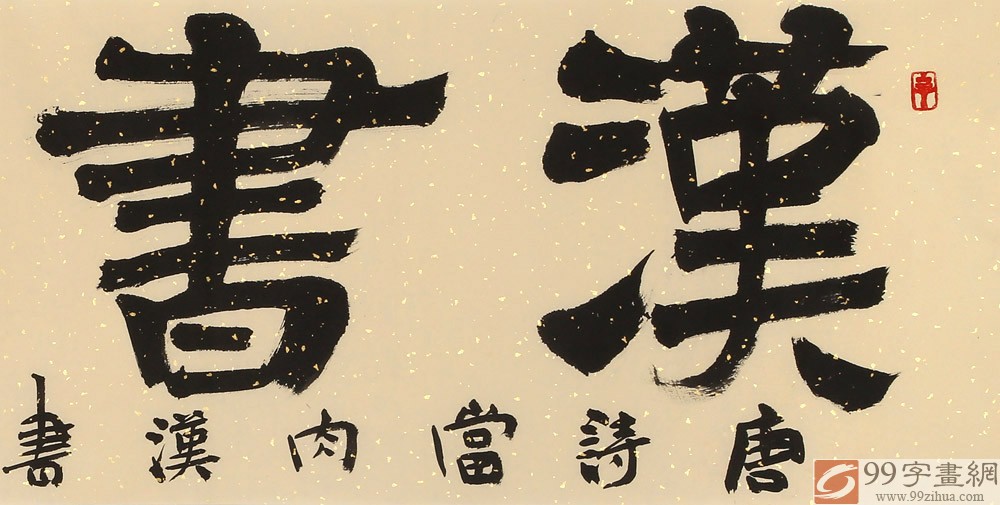 漢書
唐詩當肉漢書
99字畫網
www.99zihua.com